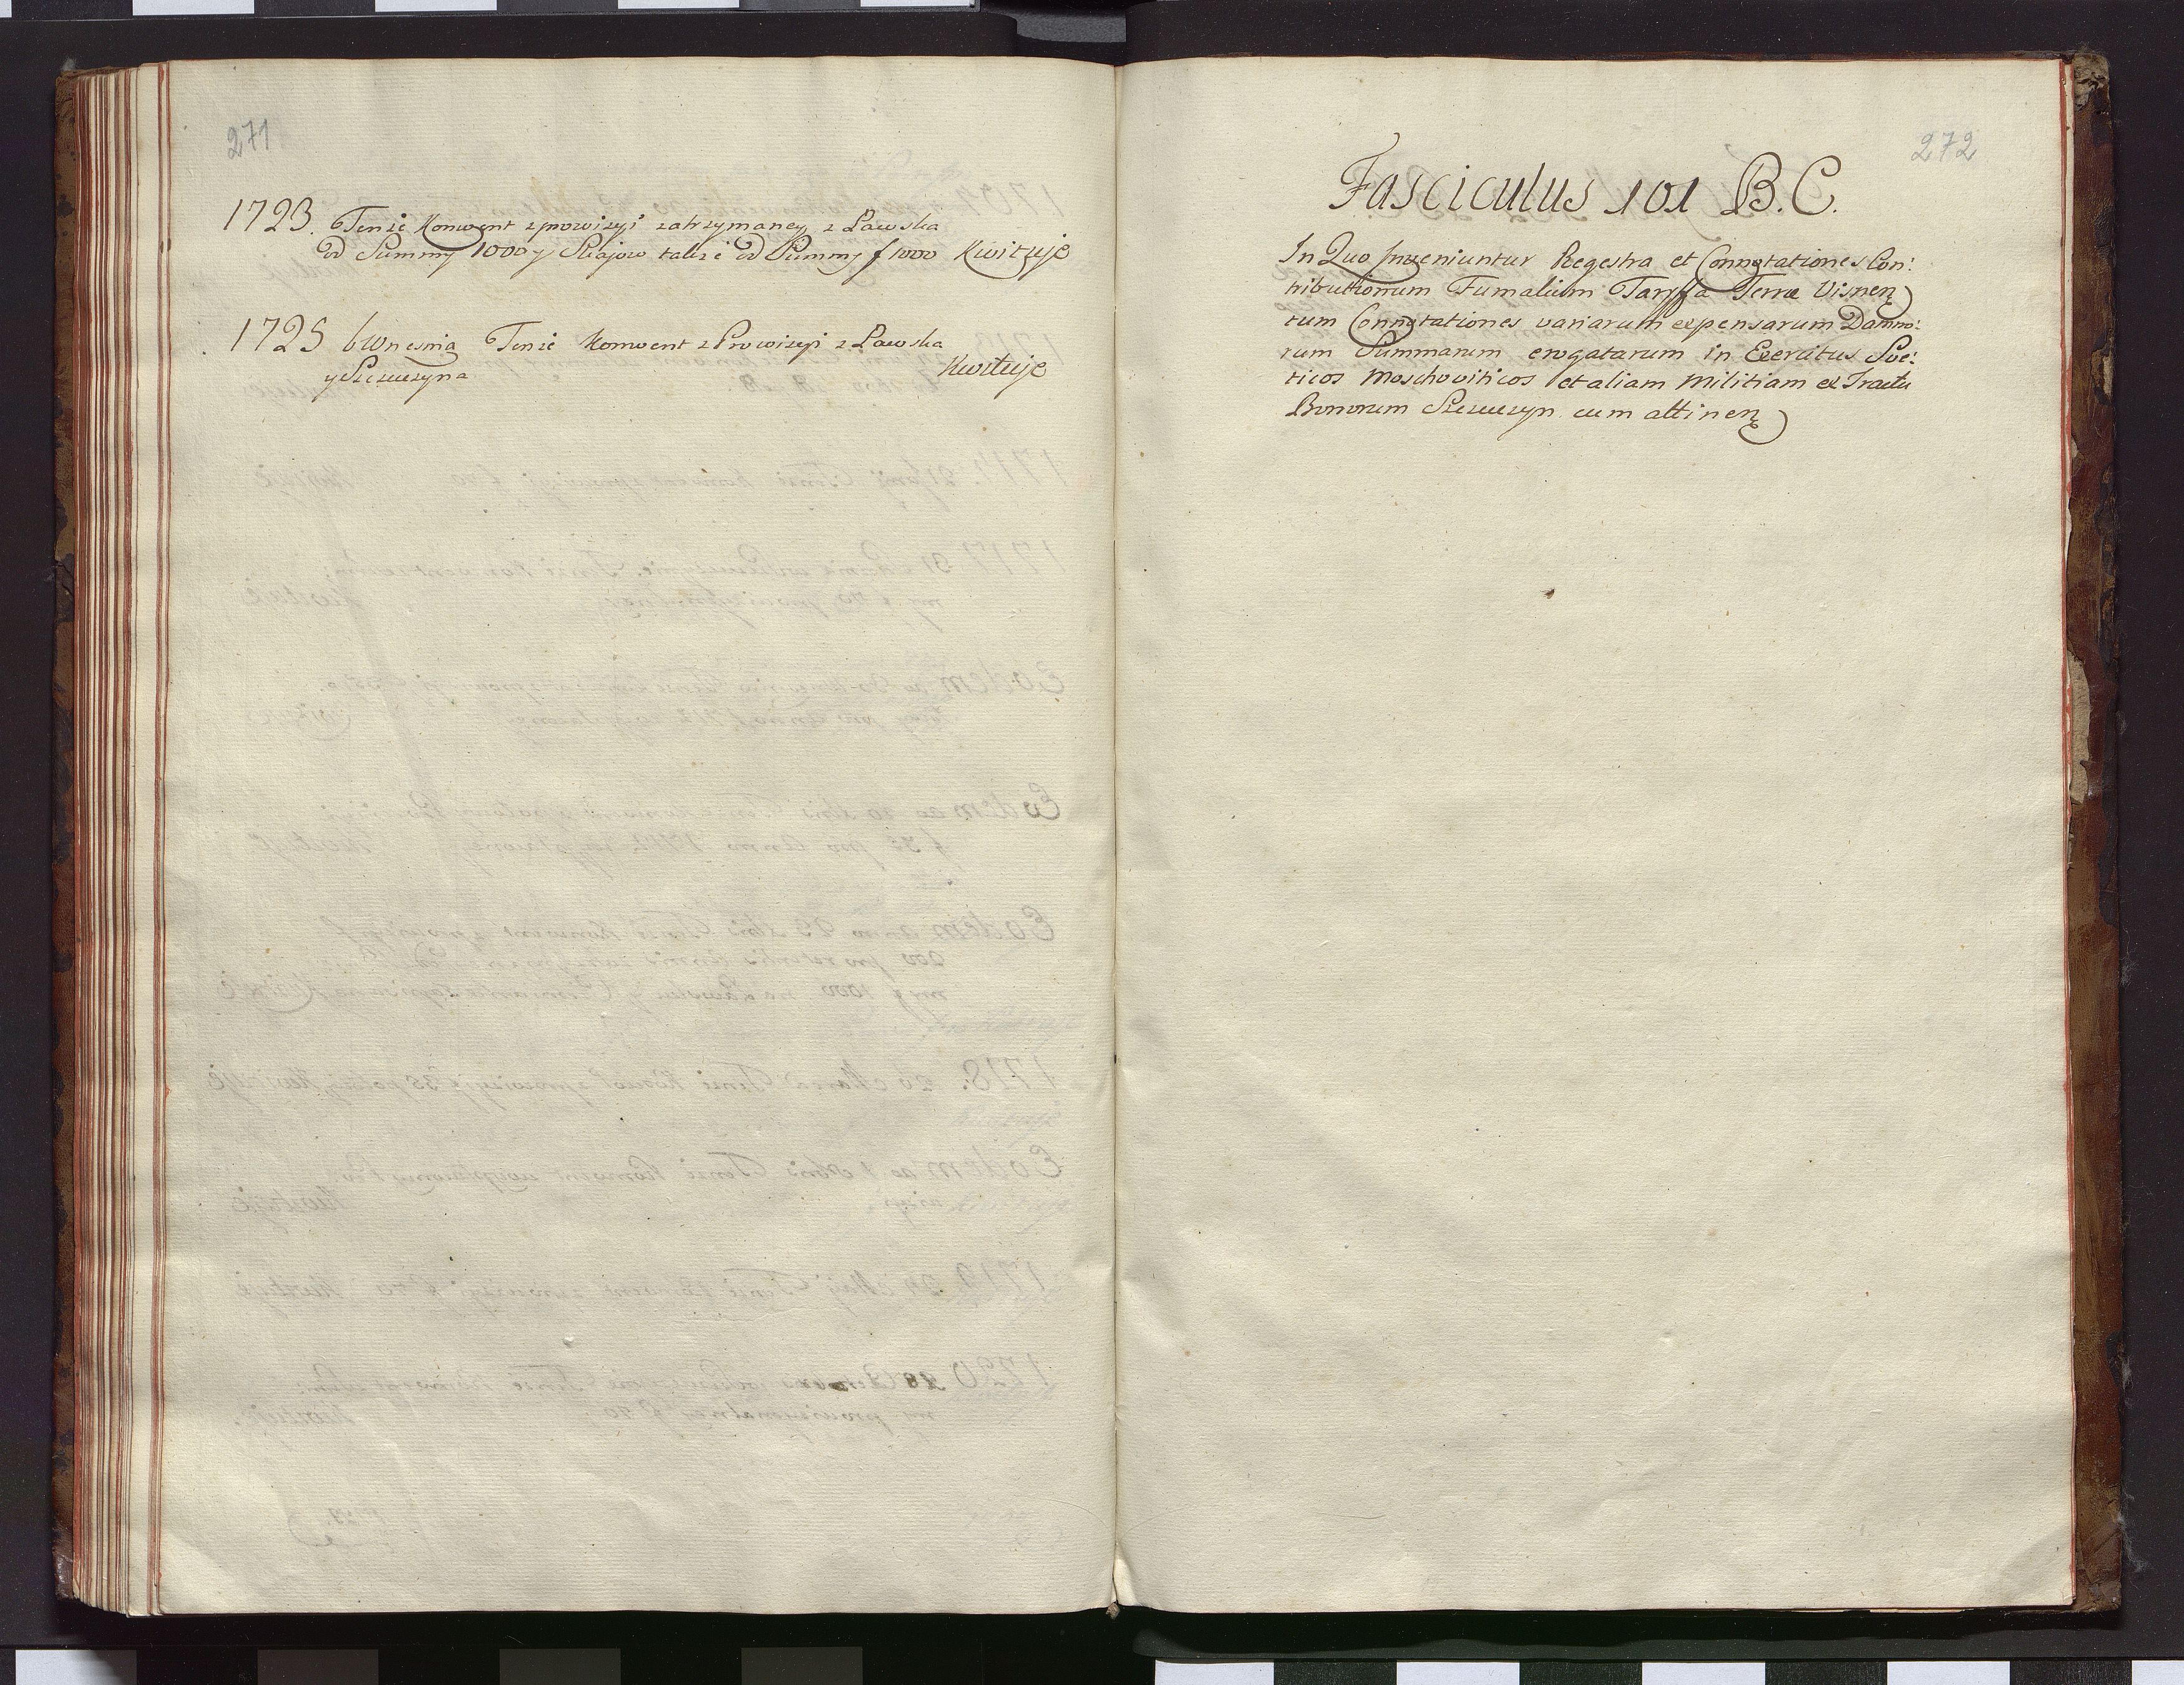 271
1723. Tenże Konwent z prowizyi zatrzymaney z Ławska
od Summy 1000 y Skajow także od Summy f 1000 Kwituje
1725 6 Wrzesnia Tenże Konwent z Prowizyi z Ławska
y Szczuczyna Kwituje
272
Fasciculus 101 B.C.
In Quo Inveniuntur Regestra et Connotationes Con:
tributionum Fumalium Taryffa Terræ Visnen
cum Connotationes variarum expensarum Damno:
rum Summarum erogatarum in Exercitus Sve:
ticos Moschoviticos et aliam Militiam ex Tractu
Bonorum Szczuczyn cum attinen